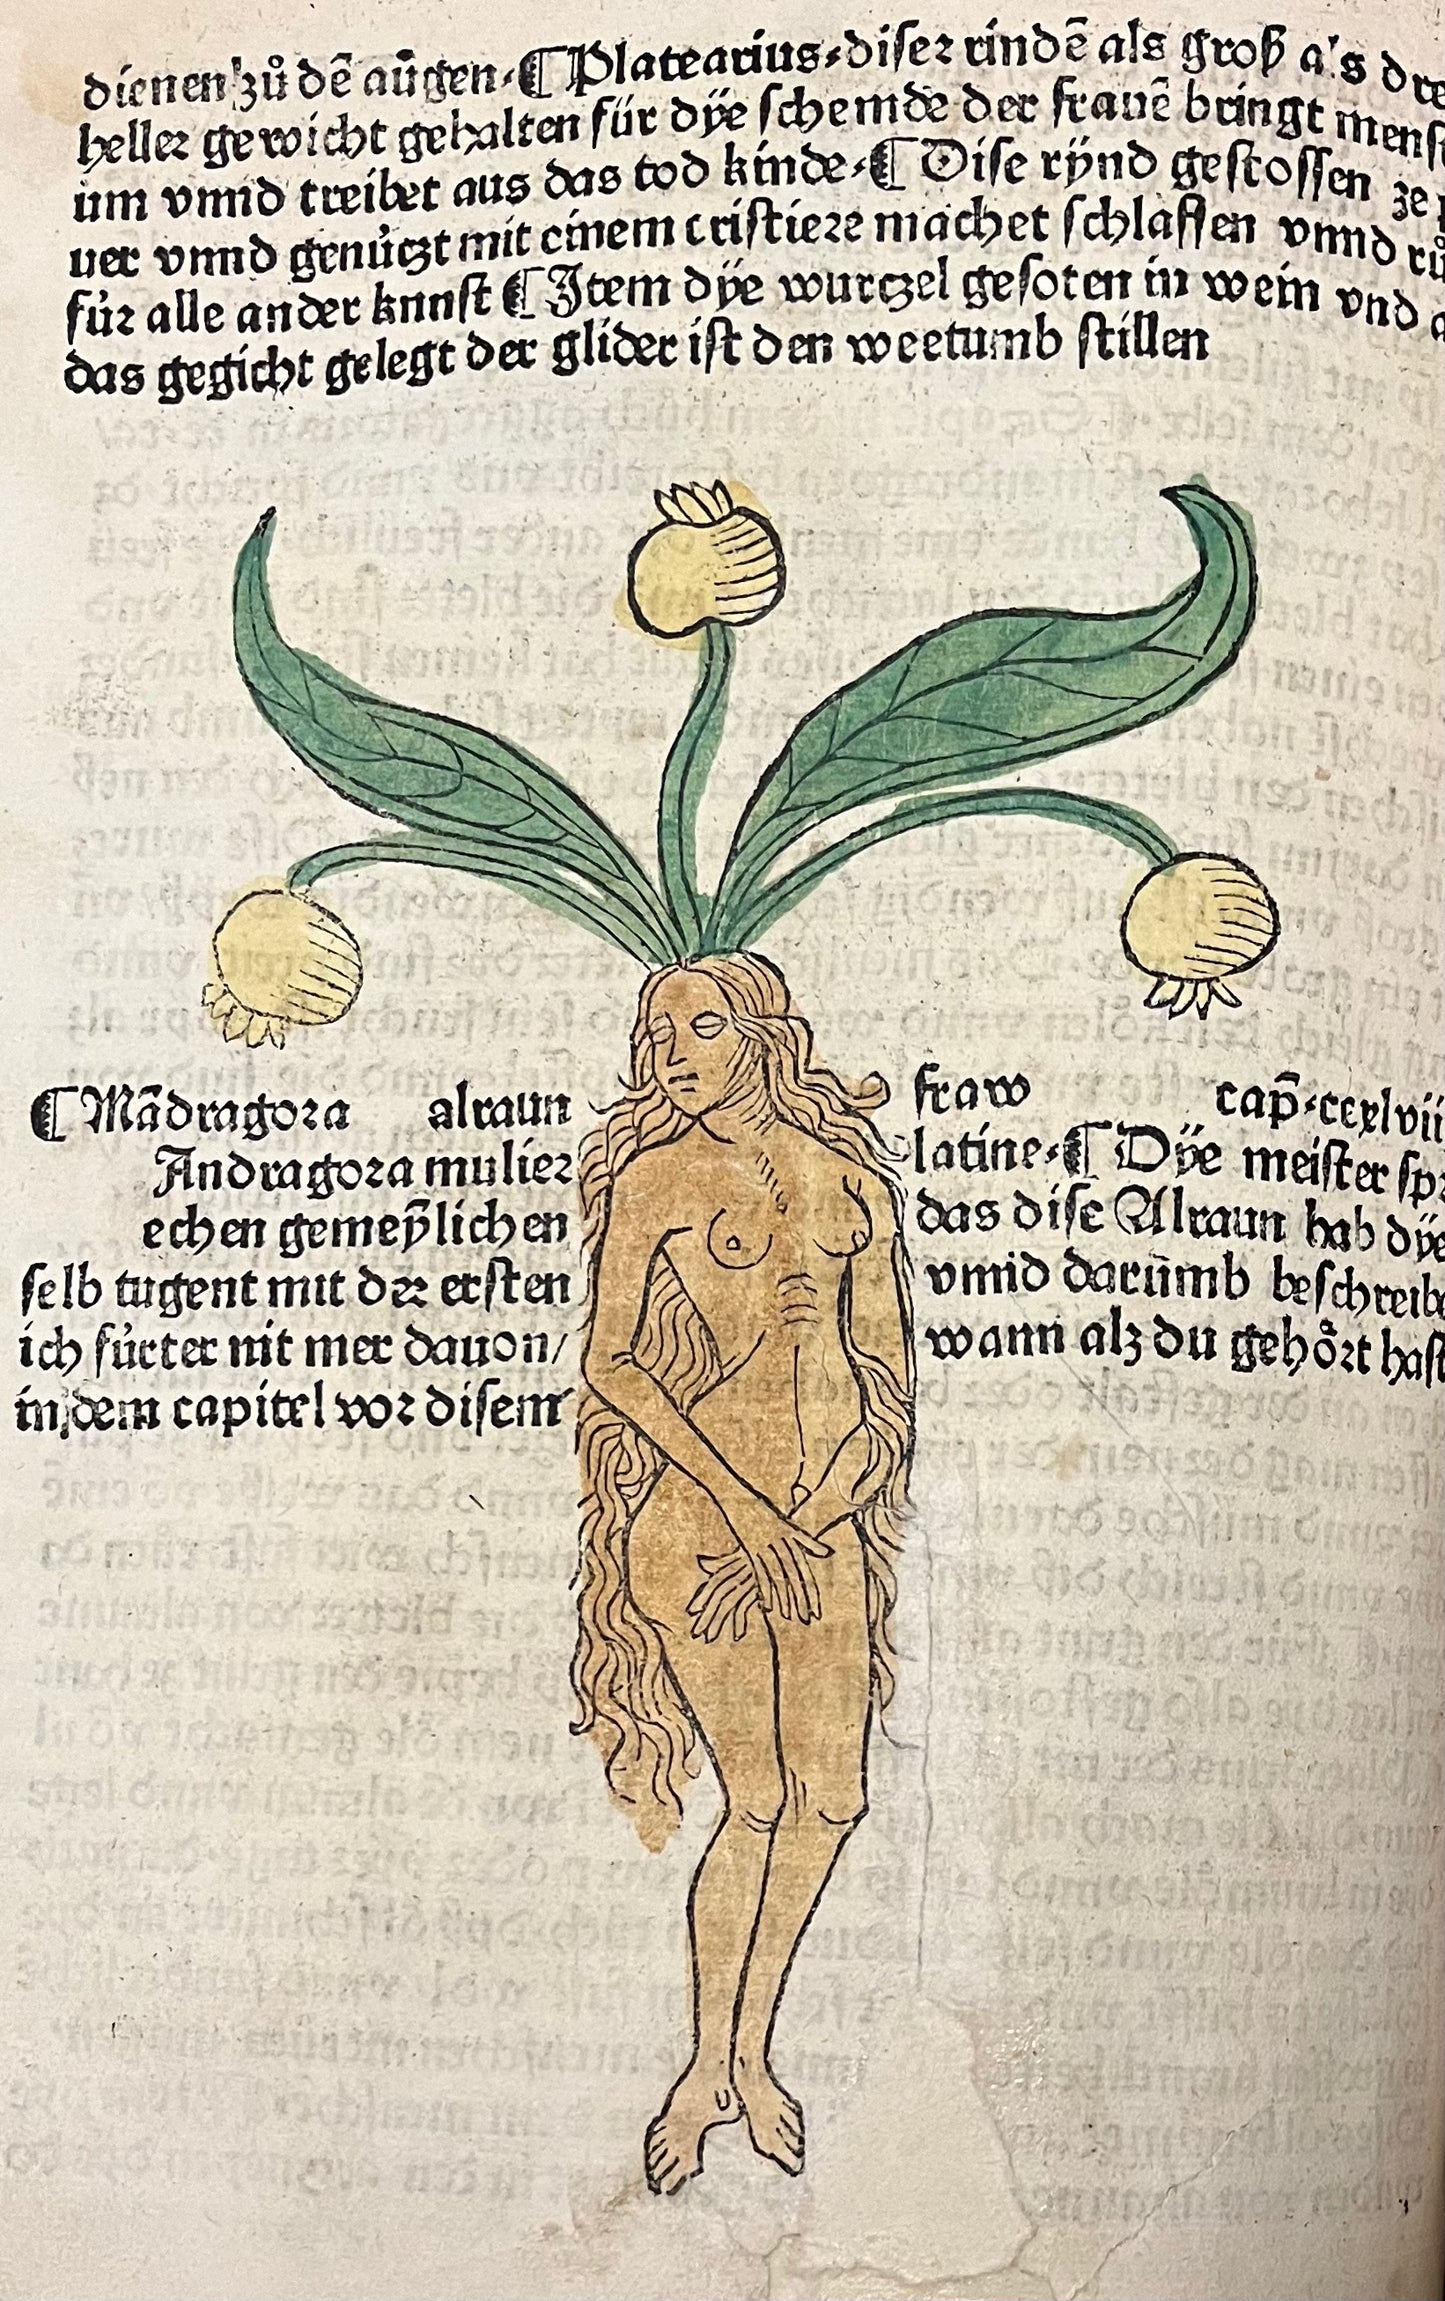 dienen zů dē augen·¶ Platearius·diser rindē als groß a's dre
heller gewicht gehalten für dÿe schemde der frauē bringt menst
um vnnd treibet aus das tod kinde·¶ Dise rÿnd gestossen ze p
uer vnnd genüczt mit einem cristiere machet schlaffen vnnd rů
für alle ander knnst ¶ Item dÿe wurczel gesoten in wein vnd a
das gegicht gelegt der glider ist den weetumb stillen
¶ Mādragora alraun fraw cap̄·ccxlvii
Andragora mulier latine·¶ Dÿe meister spr
echen gemeÿlichen das dise Alraun hab dÿe
selb tugent mit der ersten vnnd darumb beschreibe
ich fürter nit mer dauon/ wann alz du gehört hast
in dem capitel vor disem